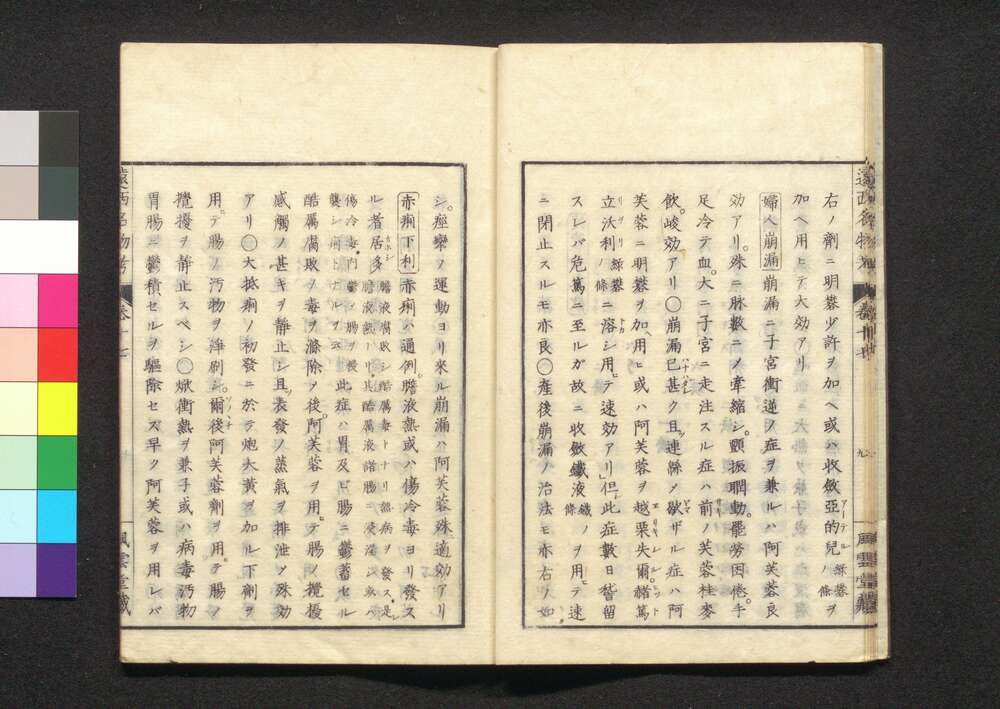 右ノ劑ニ明礬少許ヲ加ヘ或ハ收斂亞的兒アーテル 綠礬ノ條ヲ
加ヘ用ヒテ大効アリ
婦人崩漏 崩漏ニ子宮衝逆ノ症ヲ兼ルハ阿芙蓉良
効アリ。殊ニ脉數ニノ牽縮シ。顫振瞤動。罷勞困倦。手
足冷テ血。大ニ子宮ニ走注スル症ハ前ノ芙蓉桂麥
飲。峻効アリ○崩漏已ハナハダシ甚ク且連緜ノ欲ザル症ハ阿
芙蓉ニ明礬ヲ加。ヒ或ハ阿芙蓉ヲ越栗失爾諸篤
立沃利リヲリ 綠礬ノ條ニ溶シ用テ速効アリ」但此症數日畱
スレバ危篤ニ至ルガ故ニ收斂鐵液 鐵ノ條ヲ用テ速
ニ閉止スルモ亦良○產後崩漏ノ治法モ亦右ノ如
シ。痙攣ノ運動ヨリ來ル崩漏ハ阿芙蓉殊適効アリ
赤痢下利 赤痢ハ通例。膽液熱或ハ傷冷毒ヨリ發ス
ル者居多 膽液腐敗シ酷厲毒トナリ 熱病ヲ發ス是レ膽液熱ナリ其酷厲液諸腸ニ浸淫シ
此症ハ胃及ビ腸ニ鬱蓄セル
酷厲腐敗ノ毒ヲ滌除ノ後。阿芙蓉ヲ用テ腸ノ攪擾
感觸ノ甚キヲ靜止シ且ツ表發ノ蒸氣ヲ排泄ノ殊効
アリ○大抵痢ノ初發ニ於テ炮大黃ヲ加ル下劑ヲ
用テ腸ノ汚物ヲ淨刷シ。爾後ソノノチ阿芙蓉劑ヲ用テ腸ノ
攪擾ヲ靜止スベシ○焮衝熱ヲ兼子或ハ病毒汚物
胃腸ニ鬱積セルヲ驅除セズ早ク阿芙蓉ヲ用レバ
遠西名物考 卷十七
風雲堂藏